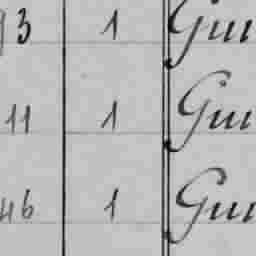 93 1 Gui
11 1 Gui
46 1 Gui